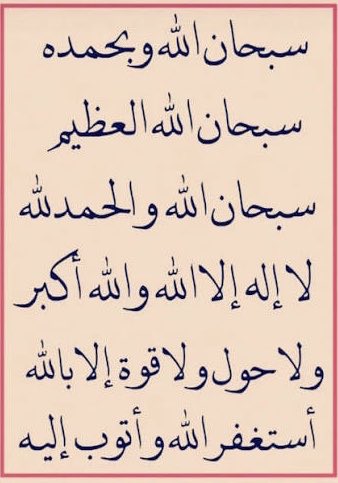 سبحان الله وبحمده
سبحان الله العظيم
سبحان الله والحمد لله
لا إله إلا الله والله أكبر
ولا حول ولا قوة إلا بالله
أستغفر الله وأتوب إليه